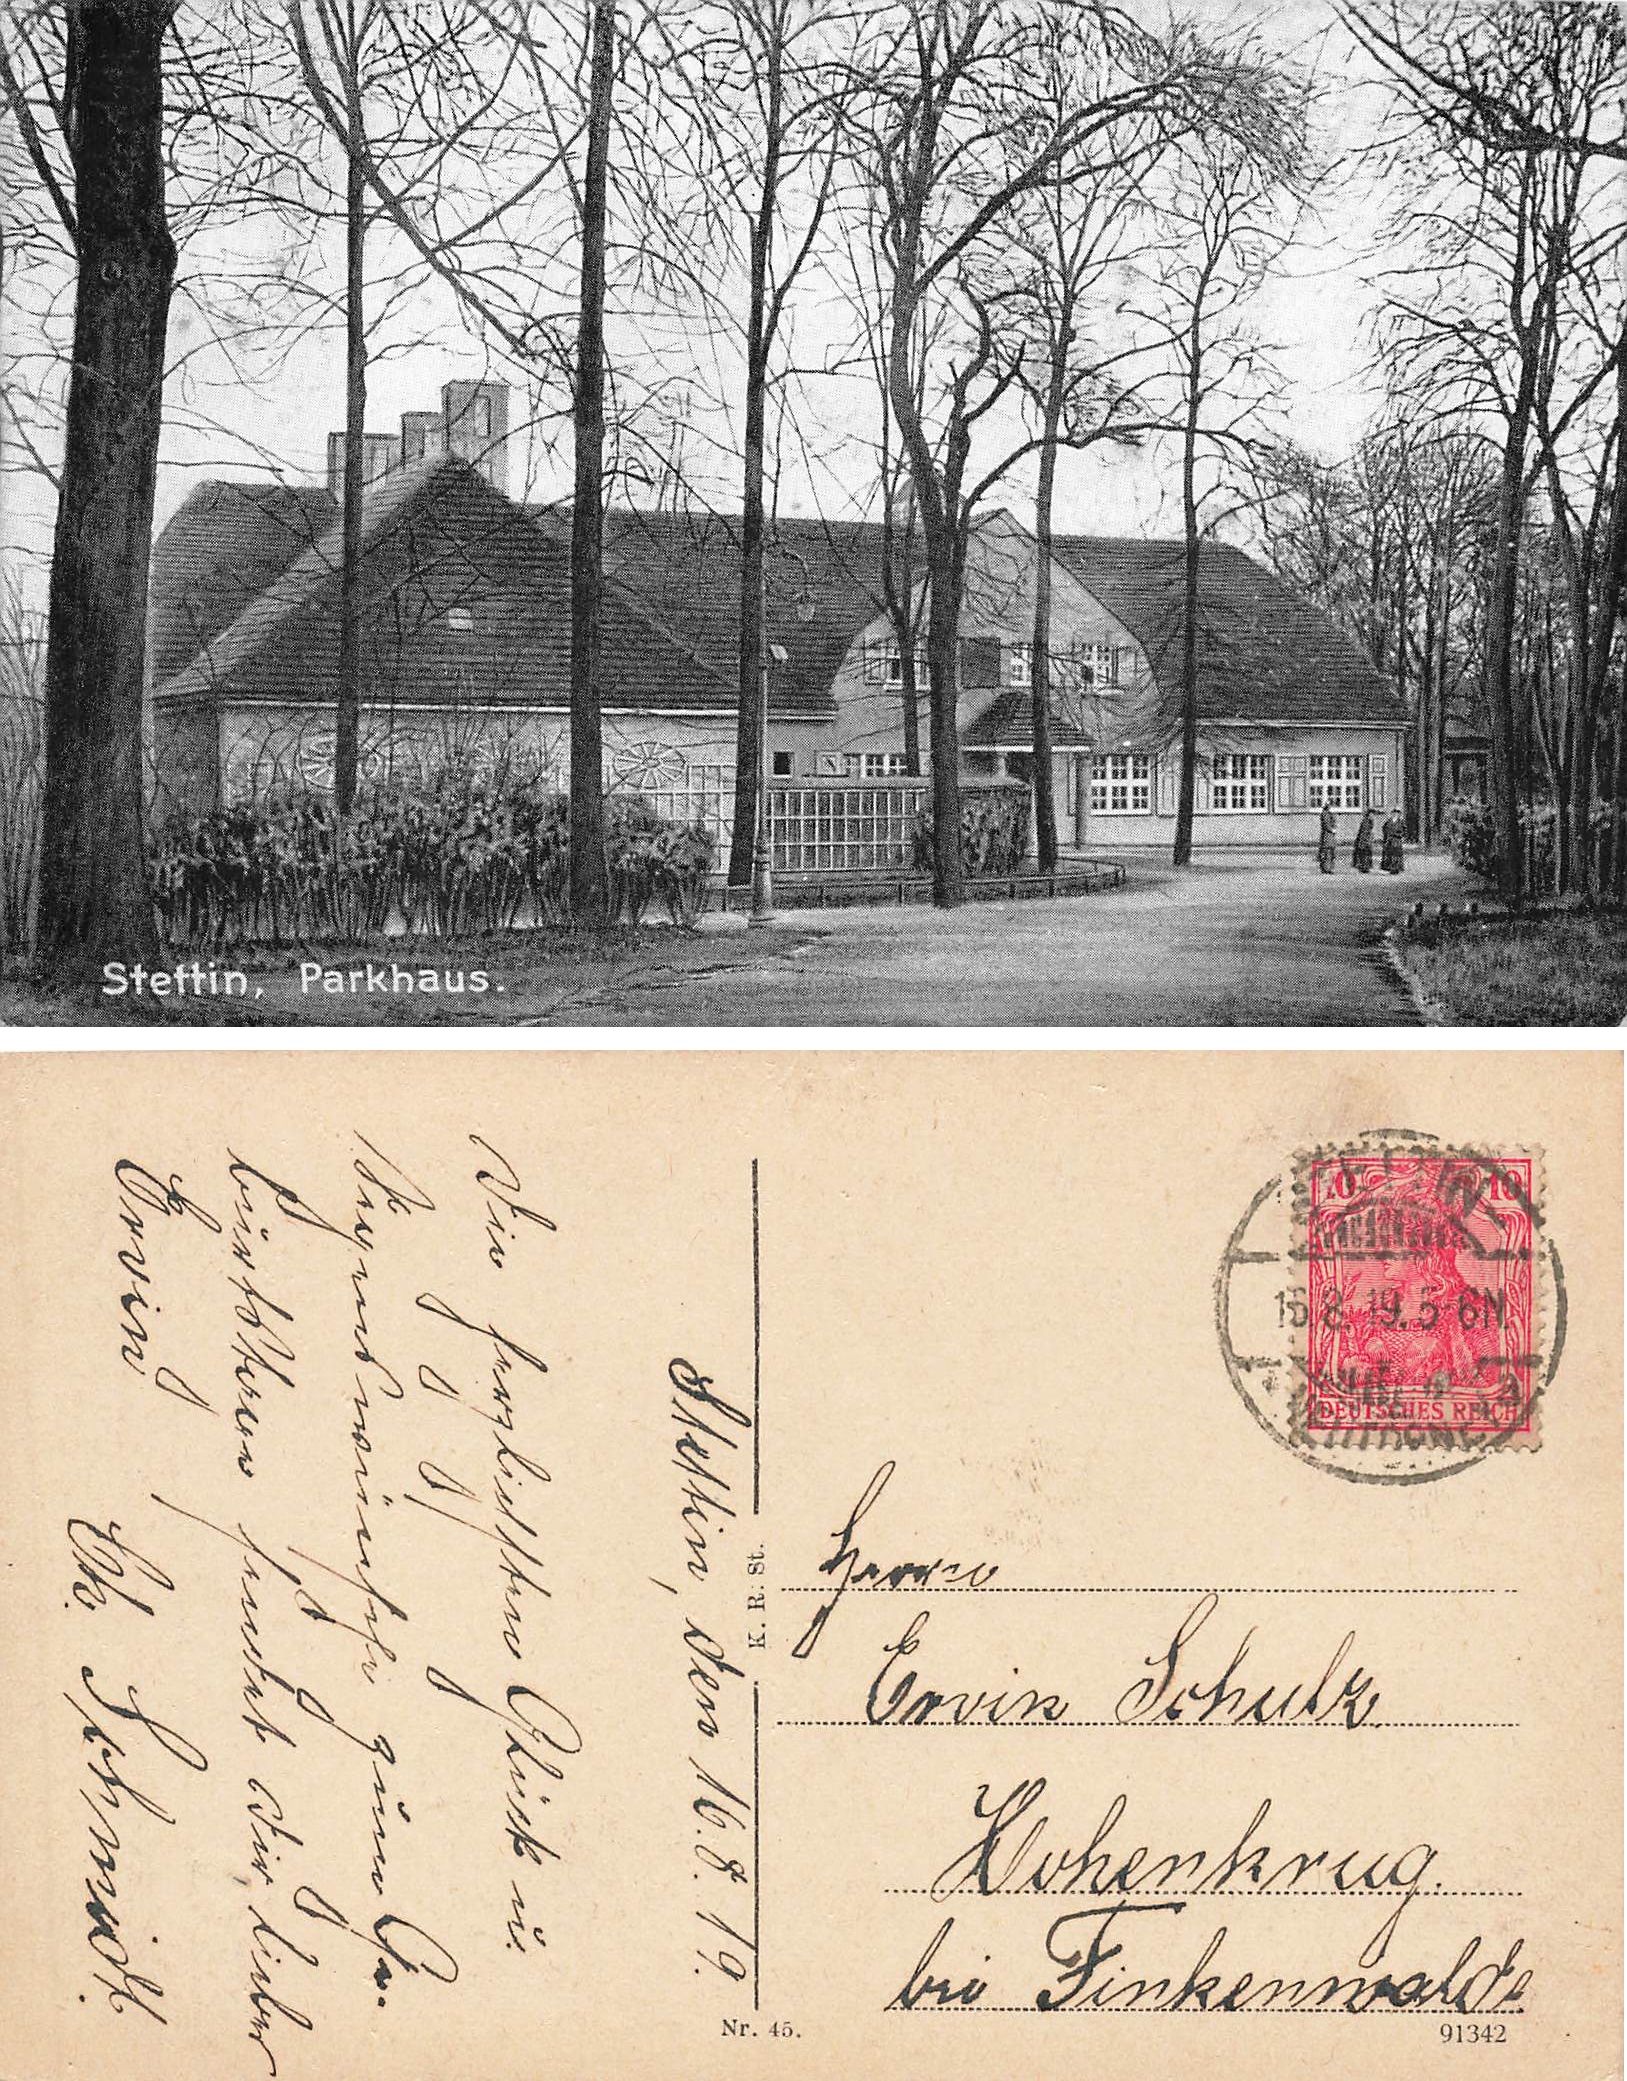 Stettin, Parkhaus.
10 10
16.8.19.5-6N.
DEUTSCHES REICH
Stettin, den 16.8.19.
Die herzlichsten Glück u.
Segenswünsche zum Ge-
burtstage sendet Dir, lieber
Ervin
Ch. Schmidt.
K. R. St.
Herrn
Ervin Schulz
Hohenkrug.
bei Finkenwalde
Nr. 45.
91342